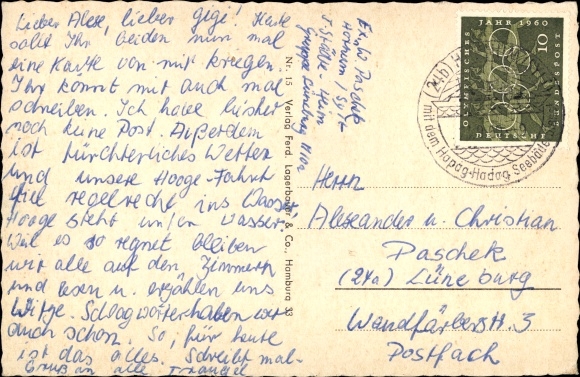 Lieber Alex, lieber Gigi! Heute
sollt Ihr beiden nun mal
eine Karte von mir kriegen.
Ihr könnt mir auch mal
schreiben. Ich habe bisher
noch keine Post. Außerdem
ist fürchterliches Wetter
und unsere Hooge-Fahrt
fiel regelrecht ins Wasser.
Hooge steht unter Wasser.
Weil es so regnet bleiben
wir alle auf den Zimmern
und lesen u. erzählen uns
Witze. Schlagwörter haben wir
auch schon. So, für heute
ist das alles. Schreibt mal.
Gruß an alle
Paschek
Hörnum / Sylt
Gruppe Lüneburg
Nr. 15 Verlag Ferd. Lagerbauer & Co., Hamburg 33
OLYMPISCHES JAHR 1960
10
DEUTSCHE BUNDESPOST
(24b)
mit dem Hapag-Seebäder
Herrn
Alexander u. Christian
Paschek
(24a) Lüneburg
Wandfärberstr. 3
Postfach